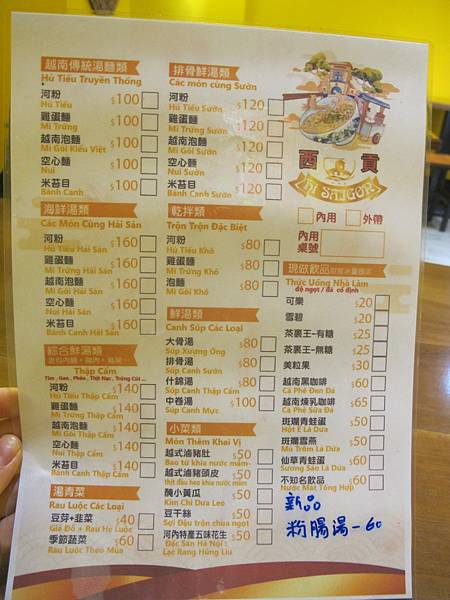 越南傳統湯麵類
Hủ Tiếu Truyền Thống
河粉 $100
Hủ Tiếu
雞蛋麵 $100
Mì Trứng
越南泡麵 $100
Mì Gói Kiểu Việt
空心麵 $100
Nui
米苔目 $100
Bánh Canh
海鮮湯類
Các Món Cùng Hải Sản
河粉 $160
Hủ Tiếu Hải Sản
雞蛋麵 $160
Mì Trứng Hải Sản
越南泡麵 $160
Mì Gói Hải Sản
空心麵 $160
Nui Hải Sản
米苔目 $160
Bánh Canh Hải Sản
綜合鮮湯類
Thập Cẩm
河粉 $140
Hủ Tiếu Thập Cẩm
雞蛋麵 $140
Mì Trứng Thập Cẩm
越南泡麵 $140
Mì Gói Thập Cẩm
空心麵 $140
Nui Thập Cẩm
米苔目 $140
Bánh Canh Thập Cẩm
燙青菜
Rau Luộc Các Loại
豆芽+韭菜 $40
Giá Đỗ + Rau Hẹ Luộc
季節蔬菜 $60
Rau Luộc Theo Mùa
排骨鮮湯類
Các món cùng Sườn
河粉 $120
Hủ Tiếu Sườn
雞蛋麵 $120
Mì Trứng Sườn
越南泡麵 $120
Mì Gói Sườn
空心麵 $120
Nui Sườn
米苔目 $120
Bánh Canh Sườn
乾拌類
Trộn Trộn Đặc Biệt
河粉 $80
Hủ Tiếu Khô
雞蛋麵 $80
Mì Trứng Khô
泡麵 $80
Mì Gói Khô
鮮湯類
Canh Súp Các Loại
大骨湯 $80
Súp Xương Ống
排骨湯 $80
Canh Súp Sườn
什錦湯 $80
Canh Súp Thập Cẩm
中卷湯 $100
Súp Canh Mực
小菜類
Món Thêm Khai Vị
越式滷豬肚 $50
Bao tử khìa nước mắm
越式滷豬頭皮 $50
thịt đầu heo khìa nước mắm
醃小黃瓜 $50
Kim Chi Dưa Leo
豆干絲 $50
Sợi Đậu trộn chua ngọt
河內特產五味花生 $50
Đặc Sản Hà Nội :
Lạc Rang Húng Lìu
西貢
NI SAIGON
內用 外帶
內用
桌號
現做飲品
Thức Uống Nhà Làm
độ ngọt / đá cố định
可樂 $20
雪碧 $20
茶裏王-有糖 $25
茶裏王-無糖 $25
美粒果 $30
越南黑咖啡 $60
Cà Phê Đen Đá
越南煉乳咖啡 $60
Cà Phê Sữa Đá
斑斕青蛙蛋 $50
Hột É Lá Dứa
斑斕雪燕 $50
Mủ Trôm Lá Dứa
仙草青蛙蛋 $60
Sương Sáo Lá Dứa
不知名飲品 $60
Nước Mát Tổng Hợp
新品
粉腸湯-60